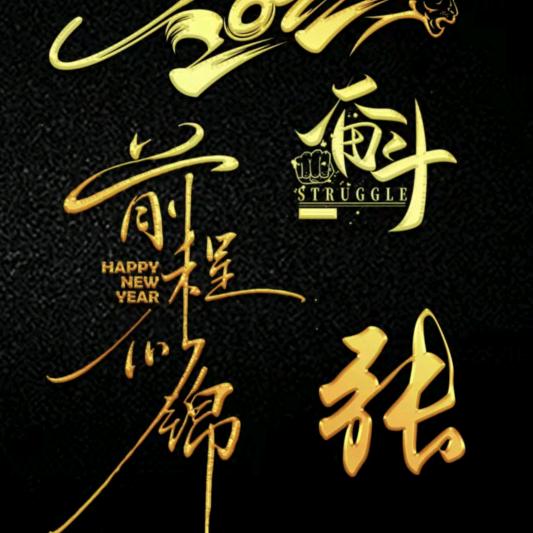 奋斗
STRUGGLE
前程似锦
HAPPY
NEW
YEAR
张